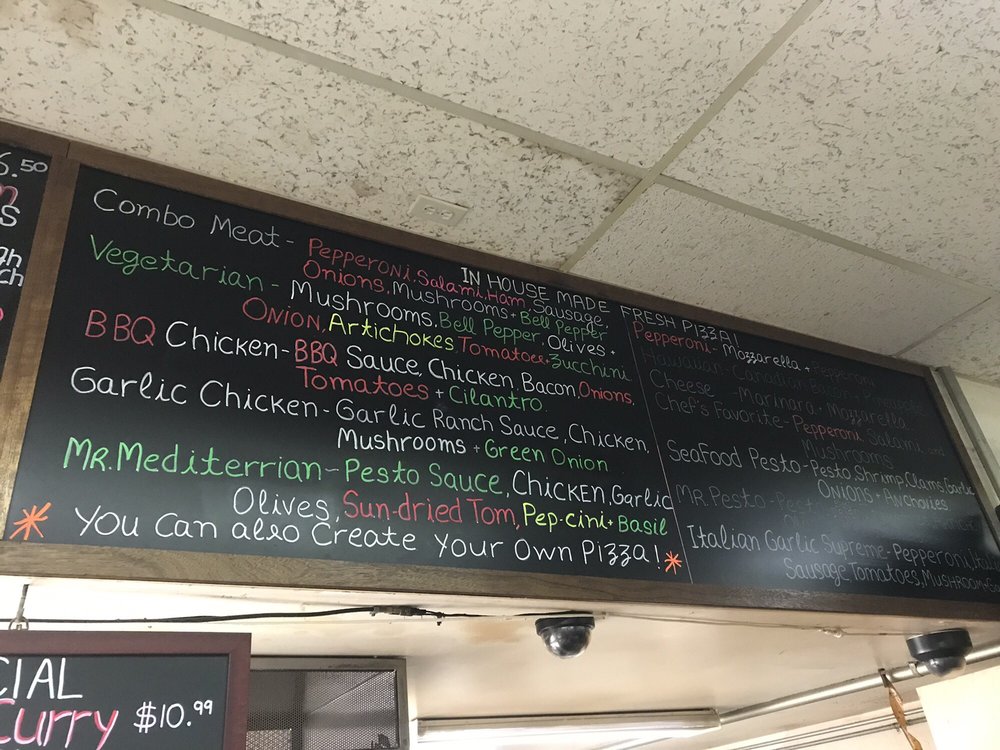 6.50
S
gh
ch
IN HOUSE MADE FRESH PIZZA!
Combo Meat - Pepperoni, Salami, Ham, Sausage,
Onions, Mushrooms + Bell Pepper
Vegetarian - Mushrooms, Bell Pepper, Olives +
Onion, Artichokes, Tomatoes, Zucchini
BBQ Chicken - BBQ Sauce, Chicken, Bacon, Onions,
Tomatoes + Cilantro
Garlic Chicken - Garlic Ranch Sauce, Chicken,
Mushrooms + Green Onion
Mr. Mediterrian - Pesto Sauce, Chicken, Garlic
Olives, Sun-dried Tom, Pep-cini + Basil
* You Can also Create Your Own Pizza! *
Pepperoni - Mozzarella + Pepperoni
Hawaiian - Canadian Bacon + Pineapple
Cheese - Marinara + Mozzarella
Chef's Favorite - Pepperoni, Salami, and
Mushrooms
Seafood Pesto - Pesto, Shrimp, Clams, Garlic
Onions + Anchovies
Mr. Pesto -
Italian Garlic Supreme - Pepperoni, Ital
Sausage, Tomatoes, Mushrooms
CIAL
Curry $10.99